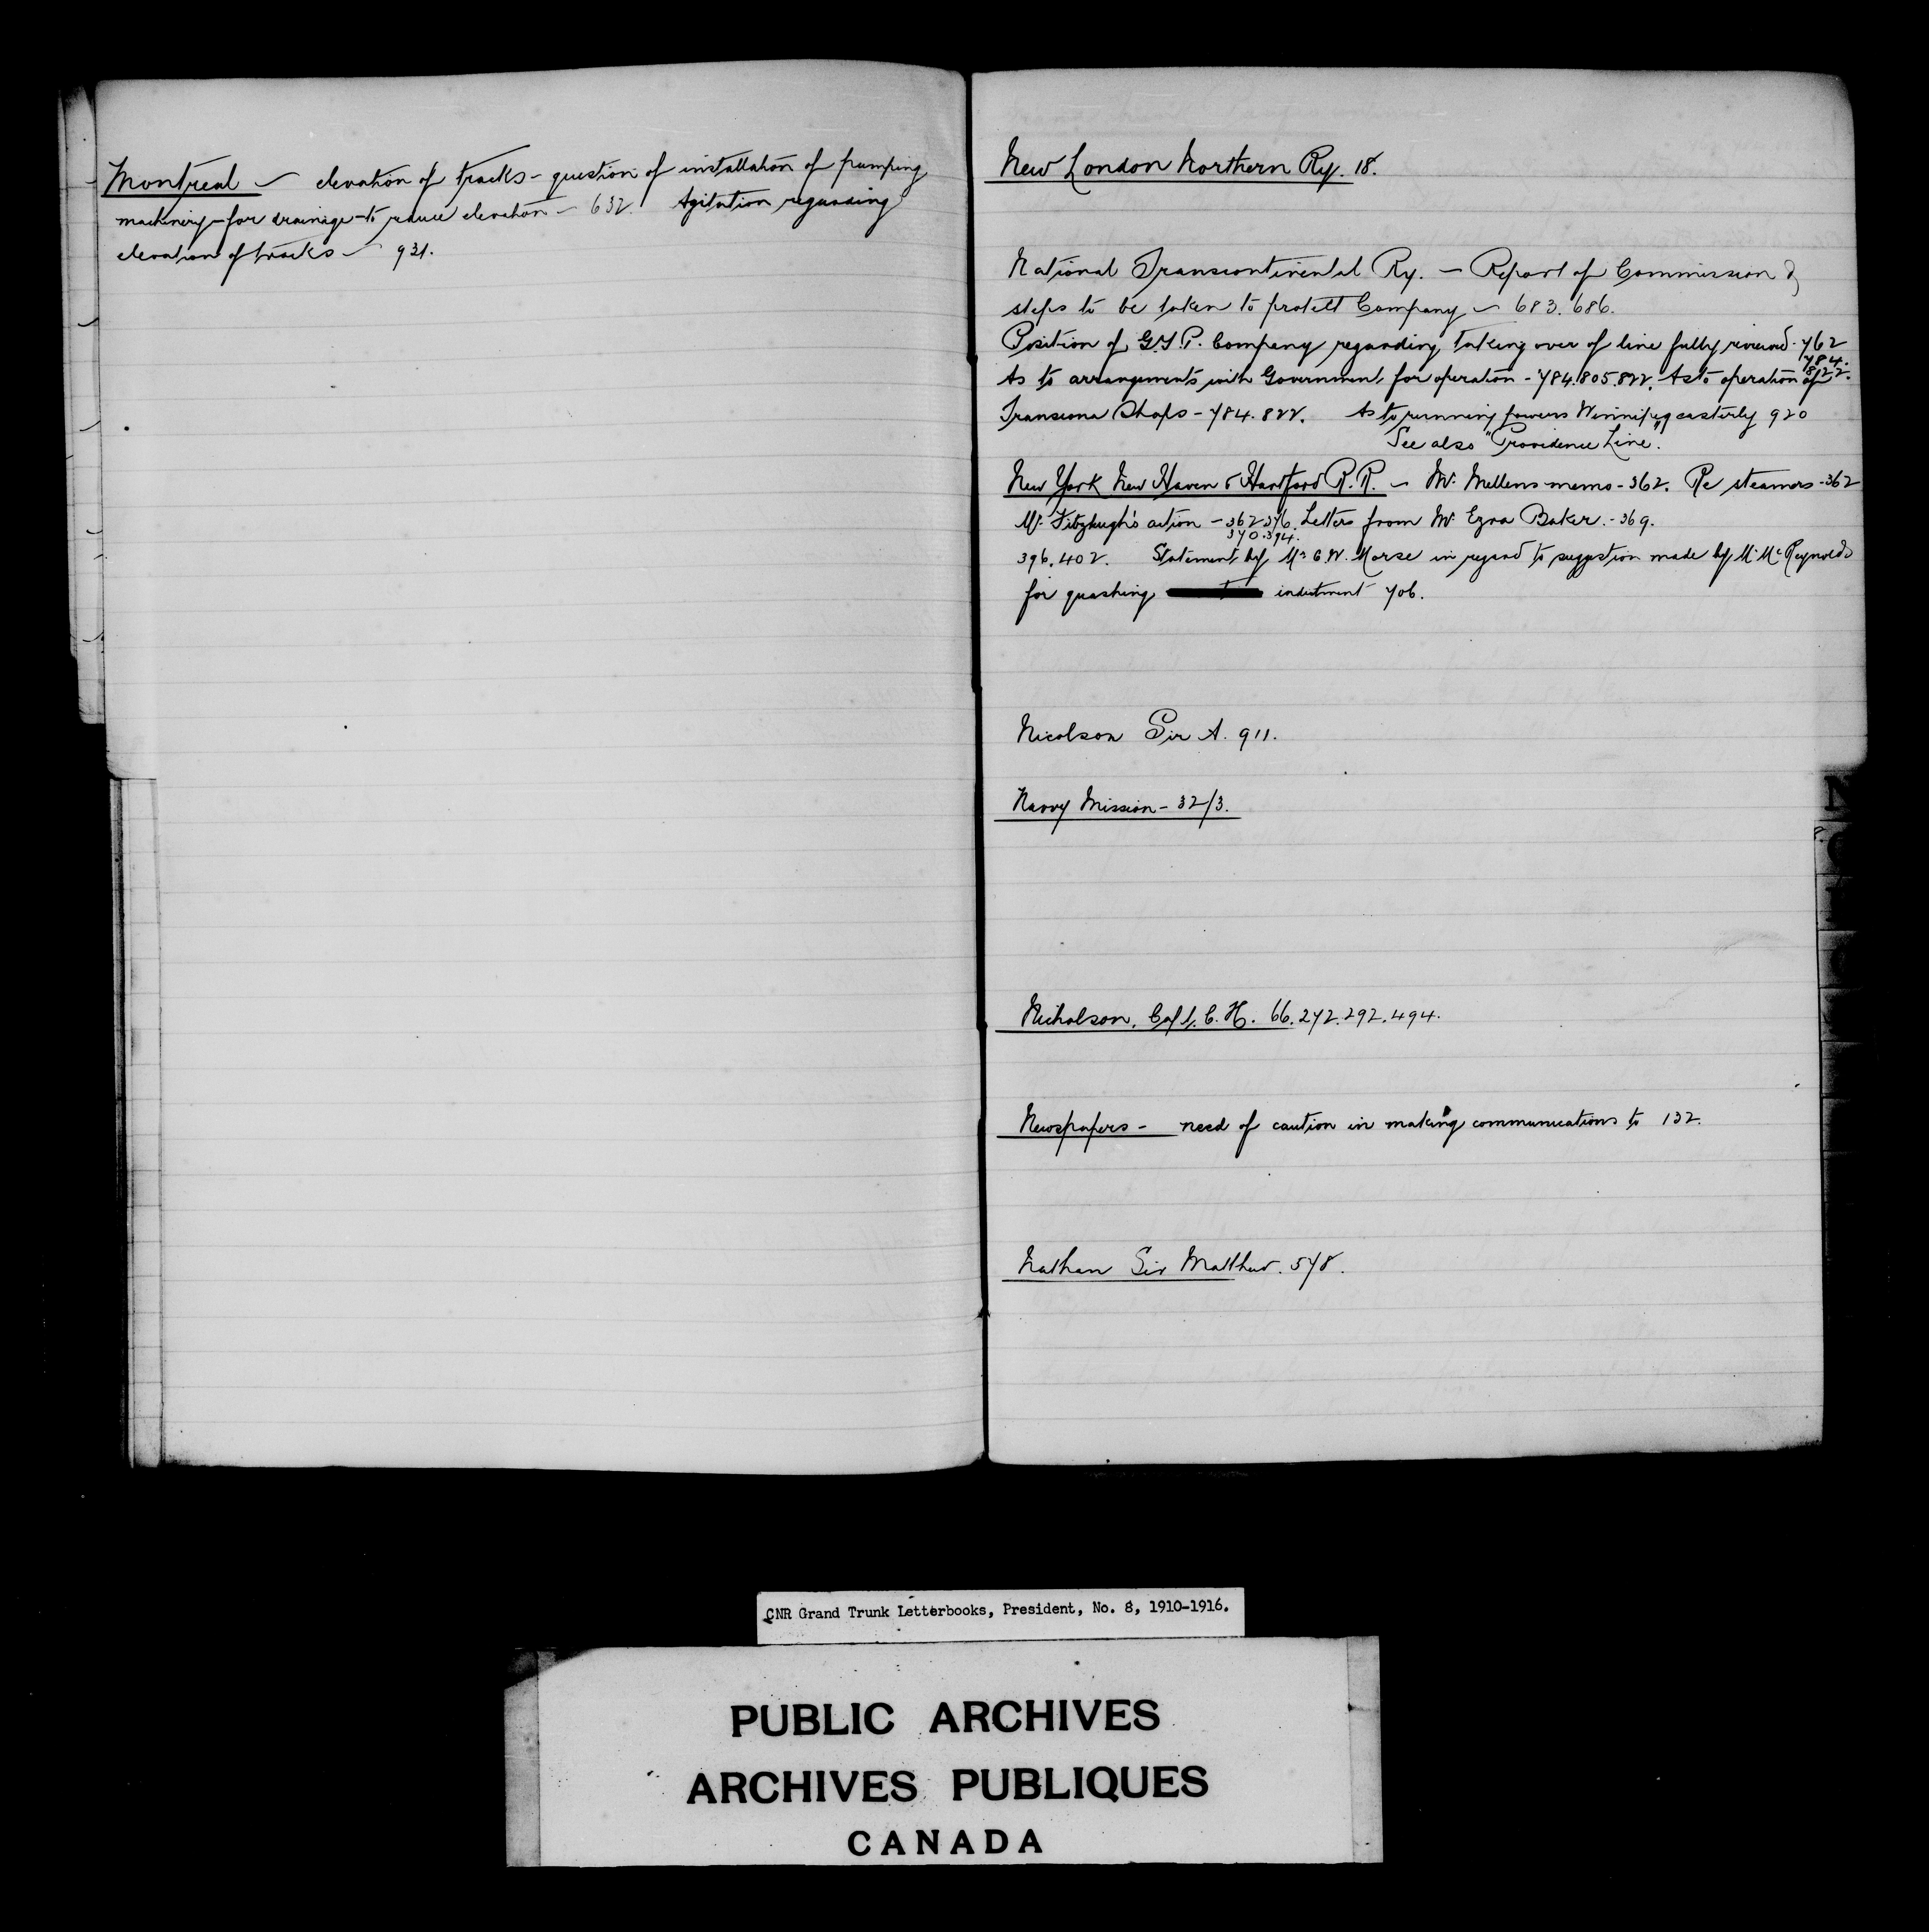 Montreal – elevation of tracks – question of installation of pumping
machinery – for drainage – to reduce elevation – 632. Agitation regarding
elevation of tracks – 931.
New London Northern Ry. 18.
National Transcontinental Ry. – Report of Commission &
steps to be taken to protect Company – 683. 686.
Position of G.T.P. Company regarding taking over of line fully reviewed. 762
784.
As to arrangements with Government for operation – 784. 805. 822. As to operation of
822.
Transcona Shops – 784. 822. As to running powers Winnipeg easterly 920
See also "Providence Line".
New York New Haven & Hartford R.R. – Mr. Mellens memo – 362. Re steamers – 362
Mr. Fitzhugh's action – 362 376. Letters from Mr. Ezra Baker. – 369.
370. 394.
396. 402. Statement by Mr C.W. Morse in regard to suggestion made by Mr McReynolds
for quashing indictment 706.
Nicolson Sir A. 911.
Navvy Mission – 32/3.
Nicholson, Capt. C. H. 66. 272. 292. 494.
Newspapers – need of caution in making communications to 132.
Nathan Sir Matthew. 578.
N
CNR Grand Trunk Letterbooks, President, No. 8, 1910-1916.
PUBLIC ARCHIVES
ARCHIVES PUBLIQUES
CANADA